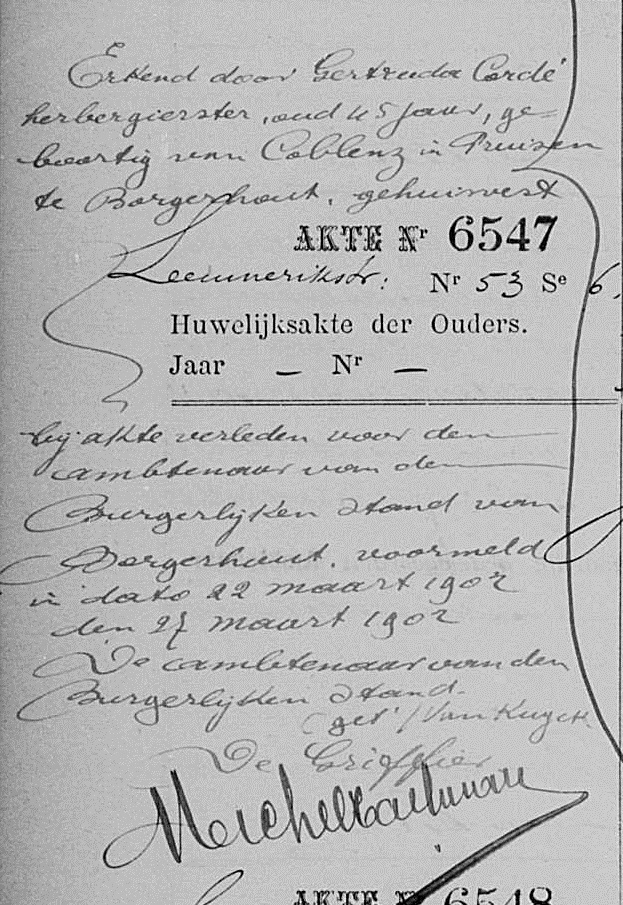 Erkend door Gertruda Cordé
herbergierster, oud 45 jaar, ge=
boortig van Coblenz in Pruisen
te Borgerhout, gehuisvest
AKTE Nr 6547
Nr 53 Se 6.
Huwelijksakte der Ouders.
Jaar — Nr —
bij akte verleden voor den
ambtenaar van den
Burgerlijken Stand van
Borgerhout, voormeld
in dato 22 maart 1902
den 27 maart 1902
De ambtenaar van den
Burgerlijken Stand.
(get) Van Kuyck
De Griffier
AKTE Nr 6548